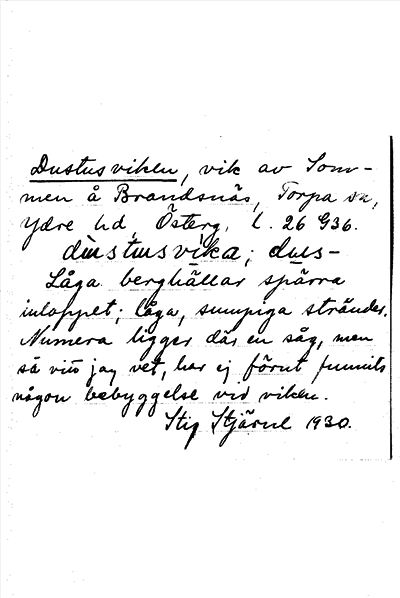 Dustusviken, vik av Som-
men å Brandsnäs, Torpa sn,
Ydre hd, Österg. l. 26 G36.
dùstùsvìka; dùs-
Låga berghällar spärra
inloppet; låga, sumpiga stränder.
Numera ligger där en såg, men
så vitt jag vet, har ej förut funnits
någon bebyggelse vid viken.
Stig Stjärne 1930.